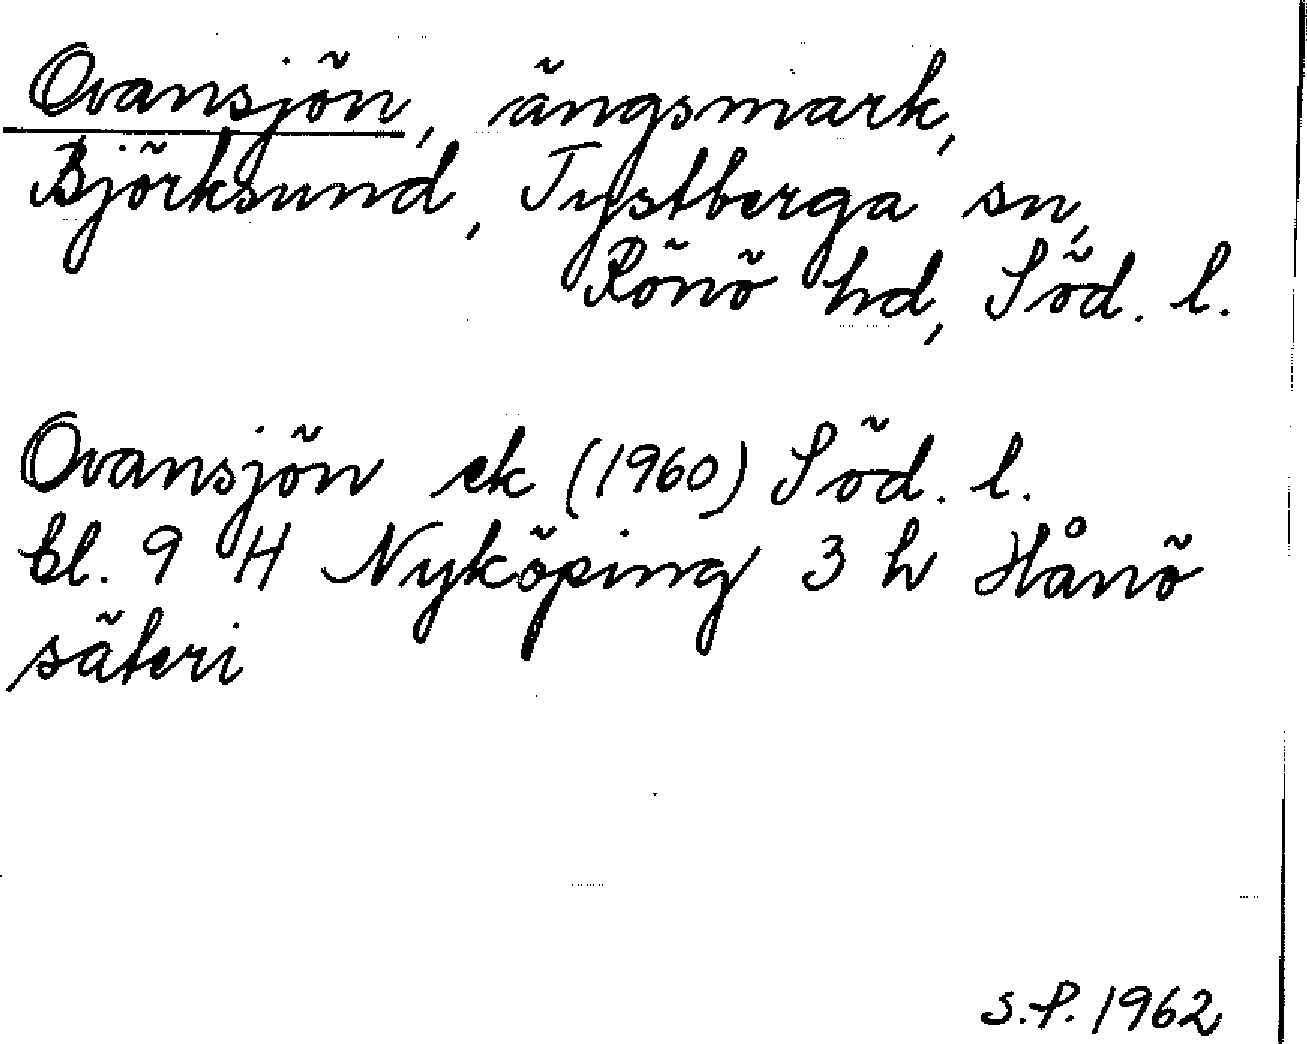 Ovansjön, ängsmark,
Björksund, Tystberga sn,
Rönö hd, Söd. l.
Ovansjön ek (1960) Söd. l.
bl. 9 H Nyköping 3 h Hånö
säteri
S.P. 1962